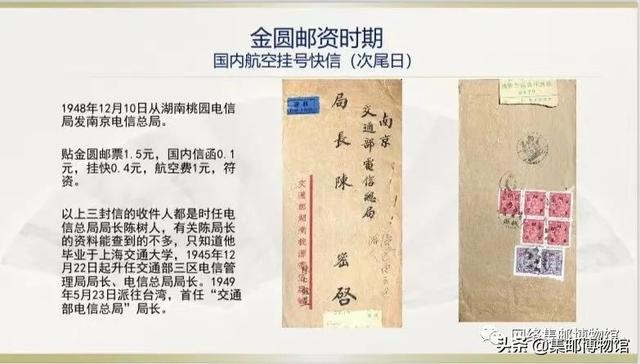 金圆邮资时期
国内航空挂号快信（次尾日）
1948年12月10日从湖南桃园电信
局发南京电信总局。
贴金圆邮票1.5元，国内信函0.1
元，挂快0.4元，航空费1元，符
资。
以上三封信的收件人都是时任电
信总局局长陈树人，有关陈局长
的资料能查到的不多，只知道他
毕业于上海交通大学，1945年12
月22日起升任交通部三区电信管
理局局长、电信总局局长。1949
年5月23日派往台湾，首任“交通
部电信总局”局长。
南京
交通部電信總局
局長陳 密啓
网络集邮博物馆
头条@集邮博物馆